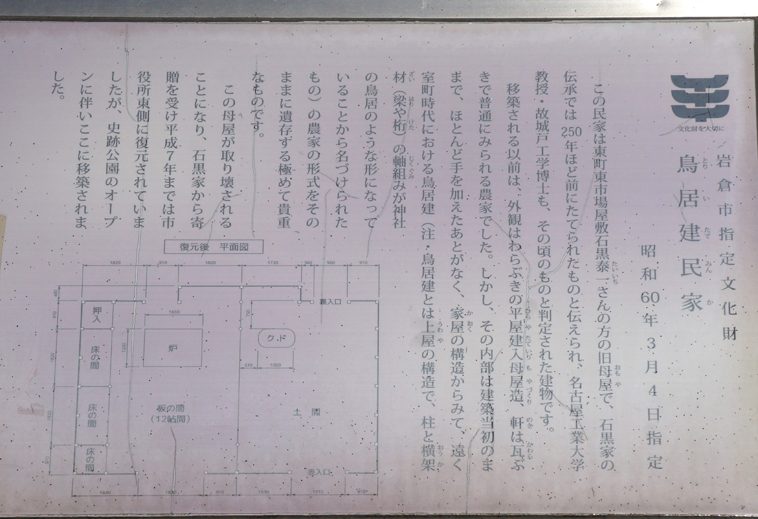 文化財を大切に
岩倉市指定文化財
鳥居建民家
とりいたてみんか
昭和60年3月4日指定
この民家は東町東市場屋敷石黒泰一さんの方の旧母屋で、石黒家の
伝承では250年ほど前にたてられたものと伝えられ、名古屋工業大学
教授・故城戸工学博士も、その頃のものと判定された建物です。
移築される以前は、外観はわらぶきの平屋建入母屋造、軒は瓦ぶ
きで普通にみられる農家でした。しかし、その内部は建築当初のま
まで、ほとんど手を加えたあとがなく、家屋の構造からみて、遠く
室町時代における鳥居建(注・鳥居建とは上屋の構造で、柱と横架
材(梁や桁)の軸組みが神社
の鳥居のような形になって
いることから名づけられた
もの)の農家の形式をその
ままに遺存する極めて貴重
なものです。
この母屋が取り壊される
ことになり、石黒家から寄
贈を受け平成7年までは市
役所東側に復元されていま
したが、史跡公園のオープ
ンに伴いここに移築されま
した。
復元後 平面図
裏入口
押入
床の間
炉
クド
床の間
板の間
(12帖間)
土間
床の間
表入口